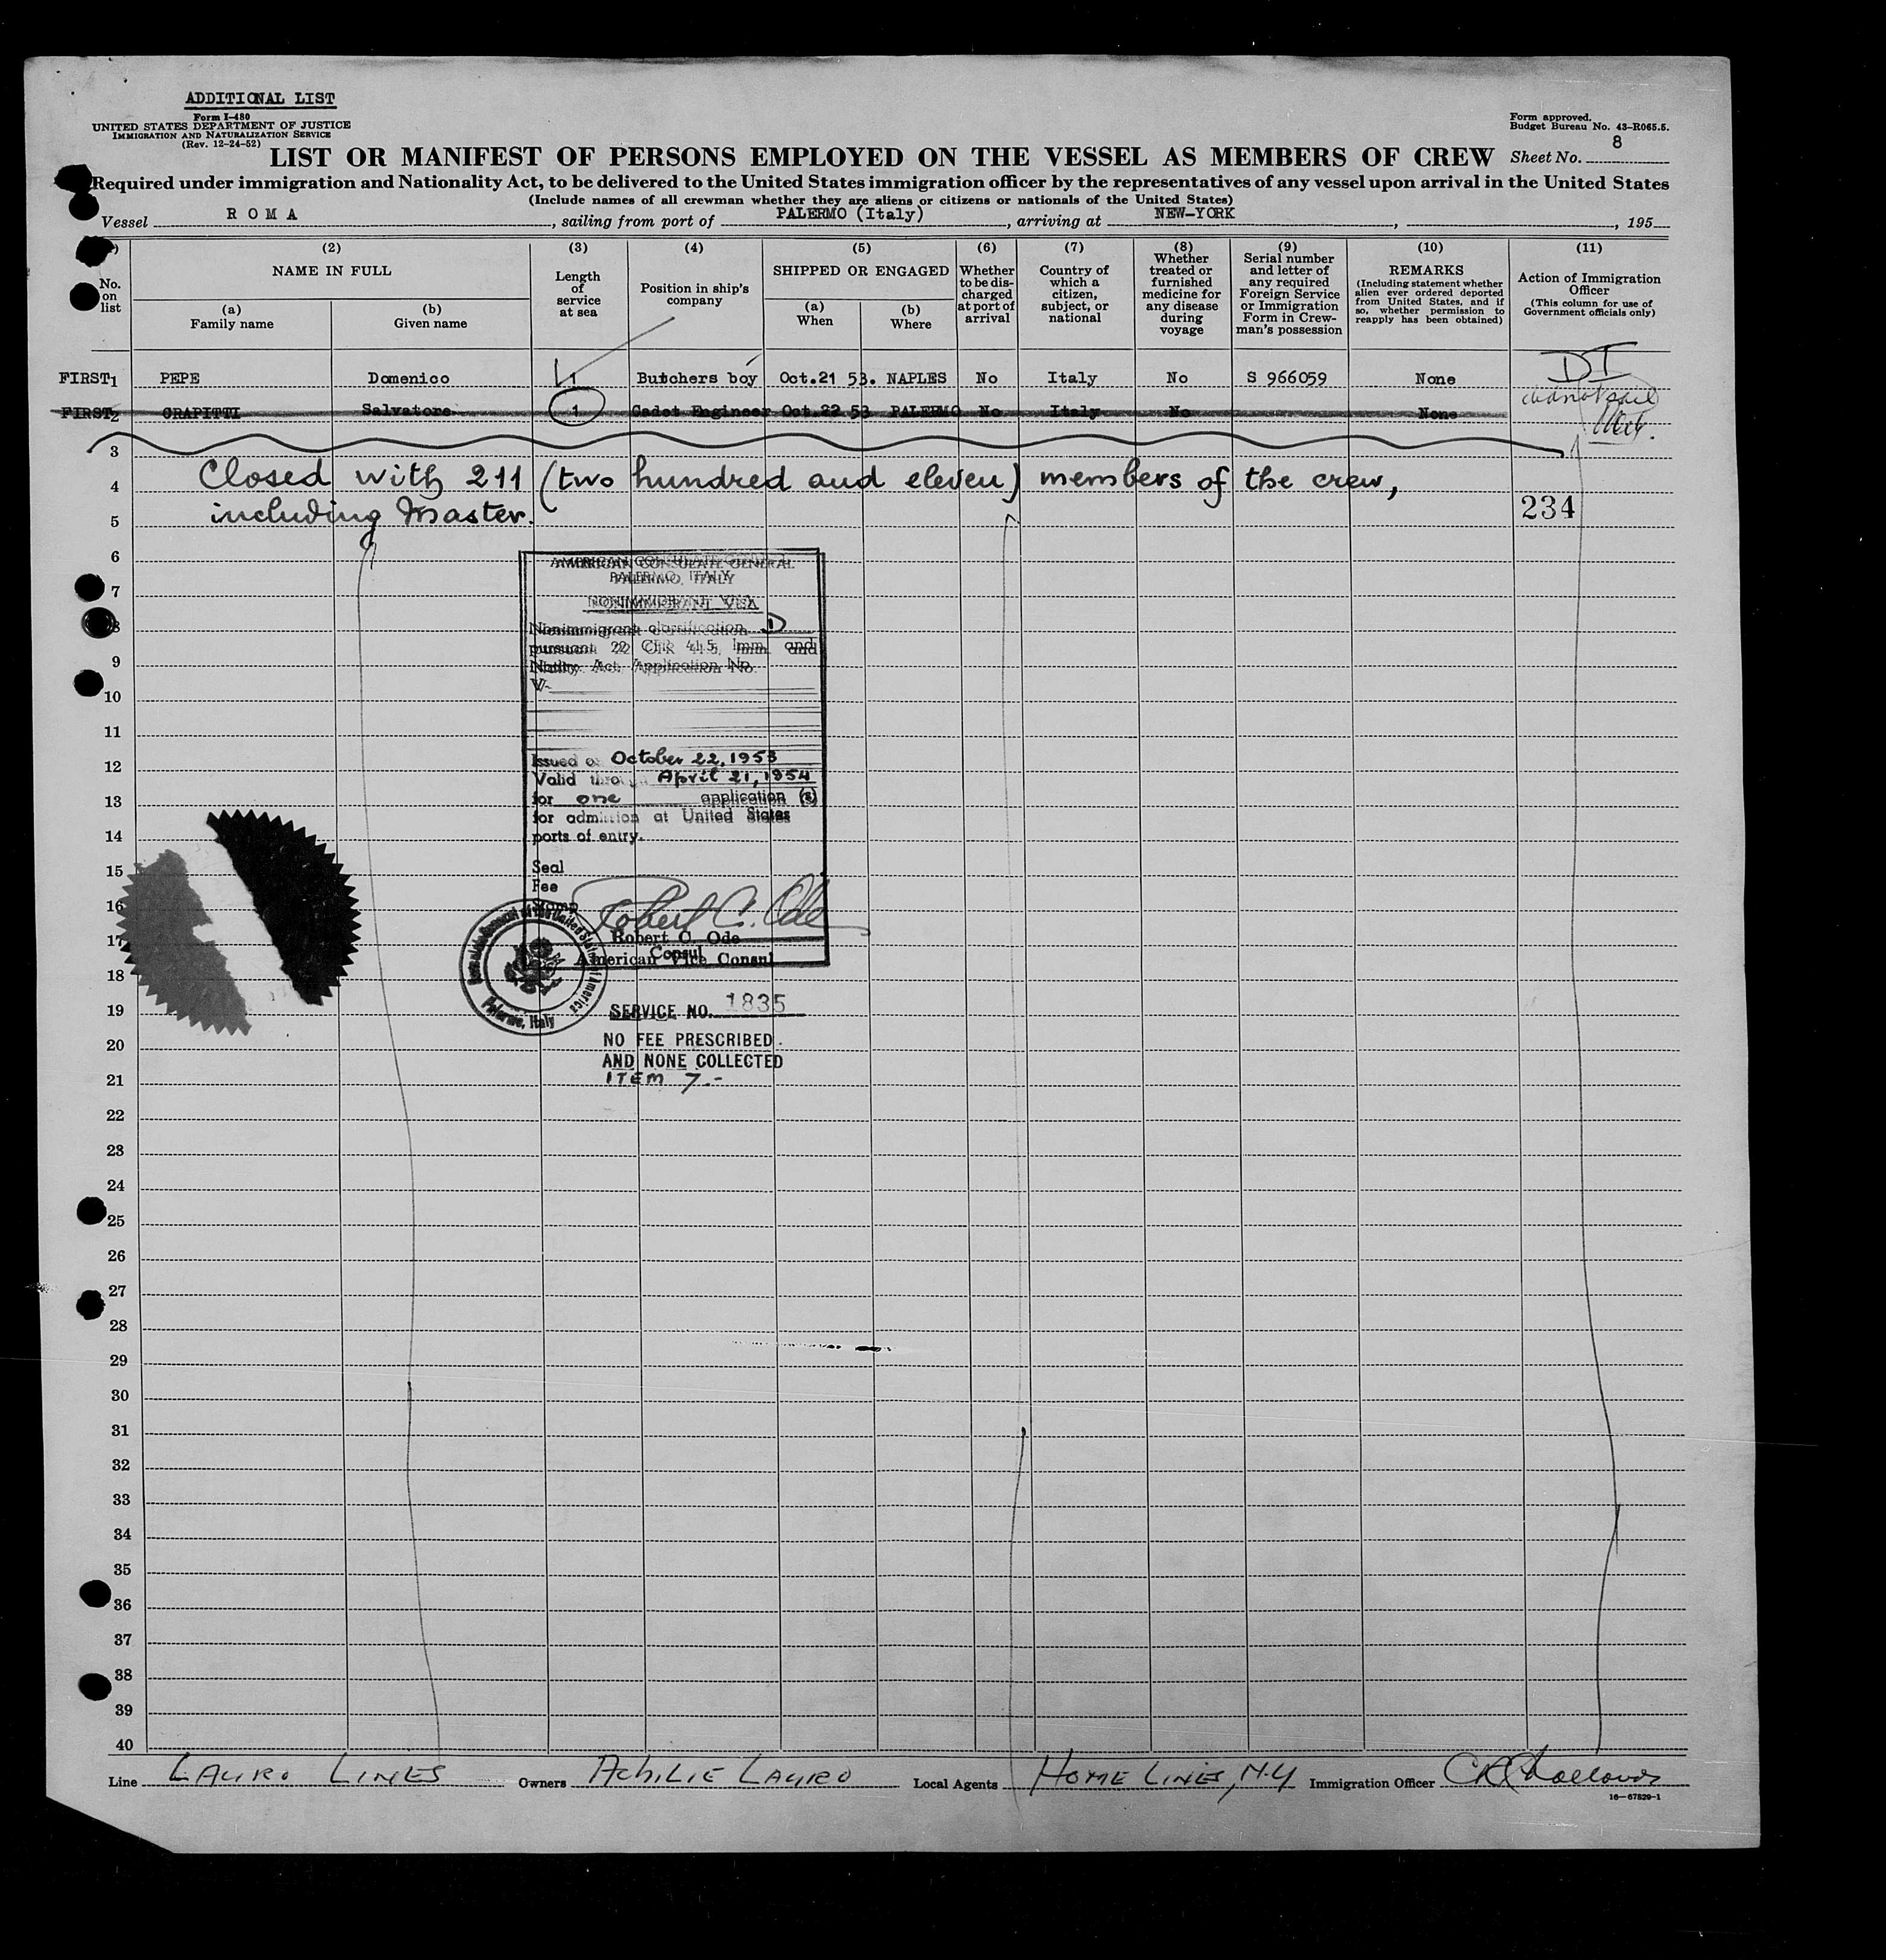 ADDITIONAL LIST
Form I-480
UNITED STATES DEPARTMENT OF JUSTICE
IMMIGRATION AND NATURALIZATION SERVICE
(Rev. 12-24-52)
Form approved.
Budget Bureau No. 43-R065.5.
LIST OR MANIFEST OF PERSONS EMPLOYED ON THE VESSEL AS MEMBERS OF CREW
Sheet No. 8
Required under immigration and Nationality Act, to be delivered to the United States immigration officer by the representatives of any vessel upon arrival in the United States
(Include names of all crewman whether they are aliens or citizens or nationals of the United States)
Vessel ROMA, sailing from port of PALERMO (Italy), arriving at NEW-YORK, , 195
No. on list
(2) NAME IN FULL
(a) Family name
(b) Given name
(3) Length of service at sea
(4) Position in ship's company
(5) SHIPPED OR ENGAGED
(a) When
(b) Where
(6) Whether to be discharged at port of arrival
(7) Country of which a citizen, subject, or national
(8) Whether treated or furnished medicine for any disease during voyage
(9) Serial number and letter of any required Foreign Service or Immigration Form in Crewman's possession
(10) REMARKS (Including statement whether alien ever ordered deported from United States, and if so, whether permission to reapply has been obtained)
(11) Action of Immigration Officer (This column for use of Government officials only)
FIRST 1 PEPE Domenico 1 Butchers boy Oct.21 53. NAPLES No Italy No S 966059 None DI
FIRST 2 GRAPITTI Salvatore 1 Cadet Engineer Oct 22 53 PALERMO No Italy No None did not sail
3
4 Closed with 211 (two hundred and eleven) members of the crew,
5 including Master. 234
6
7
8
9
10
11
12
13
14
15
16
17
18
19
20
21
22
23
24
25
26
27
28
29
30
31
32
33
34
35
36
37
38
39
40
AMERICAN CONSULATE GENERAL
PALERMO, ITALY
NONIMMIGRANT VISA
Nonimmigrant classification D
pursuant 22 CFR 41.5, Imm and
Natlty. Act. Application No.
V-
Issued o October 22, 1953
Valid through April 21, 1954
for one application (s)
for admission at United States
ports of entry.
Seal
Fee
Stamp
Robert C. Ode
Robert C. Ode
Consul
American Vice Consul
Palermo, Italy
SERVICE NO. 1835
NO FEE PRESCRIBED.
AND NONE COLLECTED
ITEM 7.-
Line LAURO LINES Owners ACHILLE LAURO Local Agents HOME LINES, N.Y Immigration Officer
16—67829-1